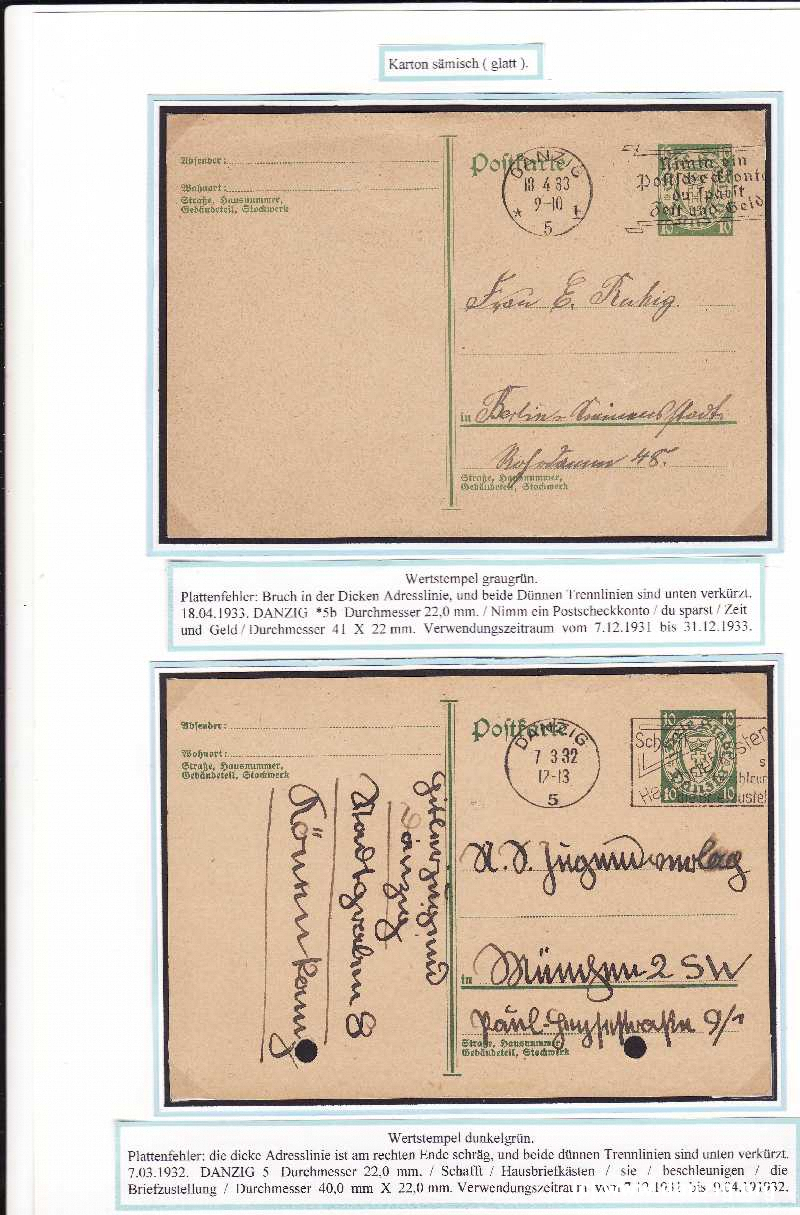 Karton sämisch ( glatt ).
Absender:
Wohnort:
Straße, Hausnummer,
Gebäudeteil, Stockwerk
Postkarte
DANZIG
18 4 33
9-10
* 5
Nimm ein
Postscheckkonto
du sparst
Zeit und Geld
10 10
Frau E. Ruhig.
in Berlin-Siemensstadt.
Rohrdamm 48.
Straße, Hausnummer,
Gebäudeteil, Stockwerk
Wertstempel graugrün.
Plattenfehler: Bruch in der Dicken Adresslinie, und beide Dünnen Trennlinien sind unten verkürzt.
18.04.1933. DANZIG *5b Durchmesser 22,0 mm. / Nimm ein Postscheckkonto / du sparst / Zeit
und Geld / Durchmesser 41 X 22 mm. Verwendungszeitraum vom 7.12.1931 bis 31.12.1933.
Absender:
Wohnort:
Straße, Hausnummer,
Gebäudeteil, Stockwerk
Hitlerjugend
Danzig
Stadtgraben 8
Postkarte
DANZIG
7 3 32
12-13
5
10 10
10 10
N. S. Jugendverlag
in München 2 SW
Paul-Heysestraße 9/1
Straße, Hausnummer,
Gebäudeteil, Stockwerk
Wertstempel dunkelgrün.
Plattenfehler: die dicke Adresslinie ist am rechten Ende schräg, und beide dünnen Trennlinien sind unten verkürzt.
7.03.1932. DANZIG 5 Durchmesser 22,0 mm. / Schafft / Hausbriefkästen / sie / beschleunigen / die
Briefzustellung / Durchmesser 40,0 mm X 22,0 mm. Verwendungszeitraum vom 7.12.1931 bis 9.04.191932.